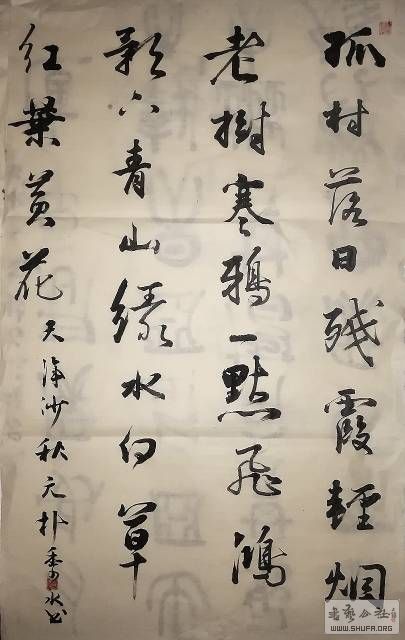 孤村落日残霞輕烟
老樹寒鴉一點飛鴻
影下青山綠水白草
紅葉黄花 天淨沙秋元朴
书艺公社
WWW.SHUFA.ORG